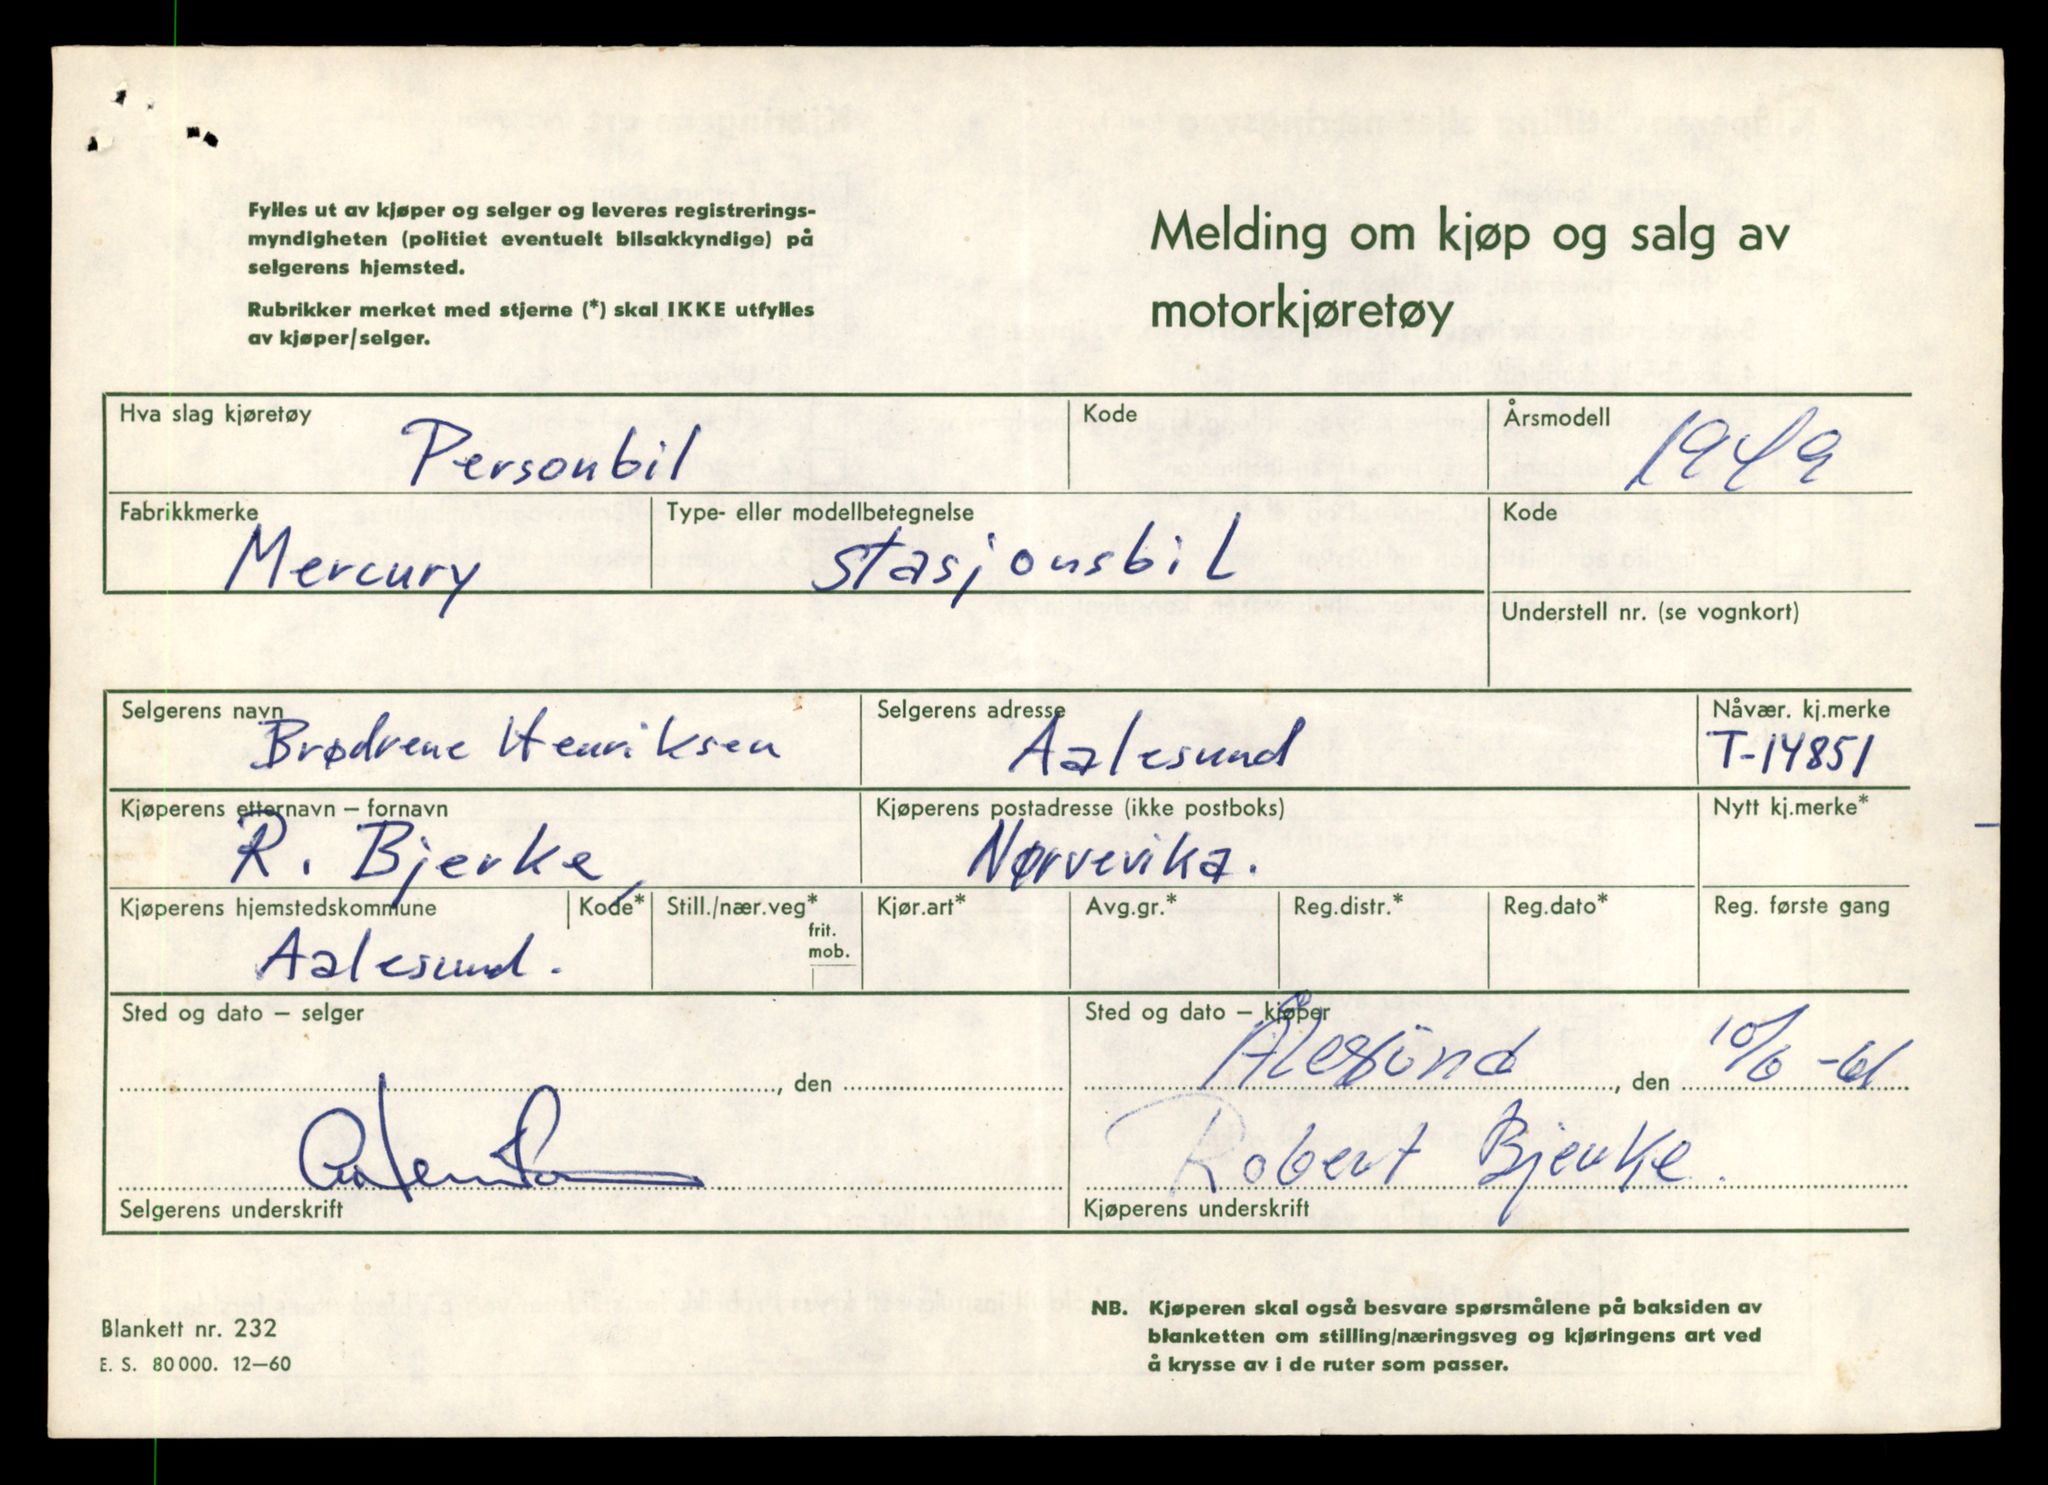 Fylles ut av kjøper og selger og leveres registrerings-
myndigheten (politiet eventuelt bilsakkyndige) på
selgerens hjemsted.
Rubrikker merket med stjerne (*) skal IKKE utfylles
av kjøper/selger.
Melding om kjøp og salg av
motorkjøretøy
Hva slag kjøretøy
Personbil
Kode
Årsmodell
1949
Fabrikkmerke
Mercury
Type- eller modellbetegnelse
stasjonsbil
Kode
Understell nr. (se vognkort)
Selgerens navn
Brødrene Henriksen
Selgerens adresse
Aalesund
Nåvær. kj.merke
T-14851
Kjøperens etternavn – fornavn
R. Bjerke,
Kjøperens postadresse (ikke postboks)
Nørvevika.
Nytt kj.merke*
Kjøperens hjemstedskommune
Aalesund.
Kode*
Still./nær.veg*
frit.
mob.
Kjør.art*
Avg.gr.*
Reg.distr.*
Reg.dato*
Reg. første gang
Sted og dato – selger
, den
Selgerens underskrift
Sted og dato – kjøper
Ålesund, den 10/6 -61
Robert Bjerke.
Kjøperens underskrift
Blankett nr. 232
E. S. 80 000. 12–60
NB. Kjøperen skal også besvare spørsmålene på baksiden av
blanketten om stilling/næringsveg og kjøringens art ved
å krysse av i de ruter som passer.